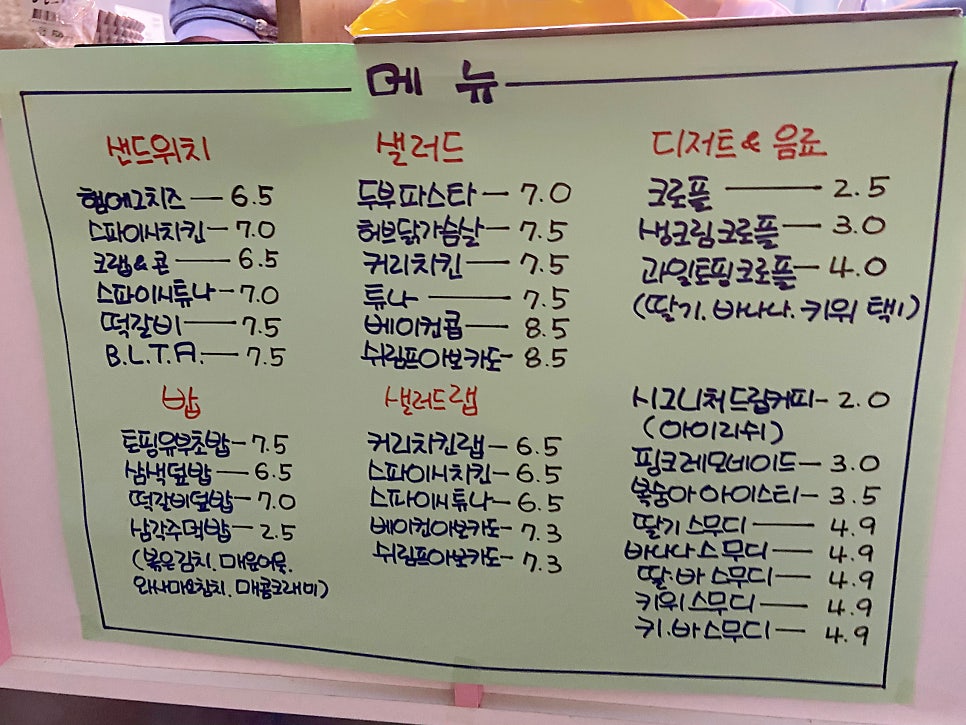 메 뉴
샌드위치
햄에그치즈 — 6.5
스파이시치킨 — 7.0
크랩&콘 — 6.5
스파이시튜나 — 7.0
떡갈비 — 7.5
B.L.T.A. — 7.5
밥
토핑유부초밥 — 7.5
삼색덮밥 — 6.5
떡갈비덮밥 — 7.0
삼각주먹밥 — 2.5
(볶은김치. 매운어묵.
와사마요참치. 매콤크래미)
샐러드
두부파스타 — 7.0
허브닭가슴살 — 7.5
커리치킨 — 7.5
튜나 — 7.5
베이컨콥 — 8.5
쉬림프아보카도 - 8.5
샐러드랩
커리치킨랩 — 6.5
스파이시치킨 - 6.5
스파이시튜나 - 6.5
베이컨아보카도 - 7.3
쉬림프아보카도 - 7.3
디저트 & 음료
크로플 — 2.5
생크림크로플 — 3.0
과일토핑크로플 — 4.0
(딸기. 바나나. 키위 택1)
시그니처드립커피 - 2.0
(아이리쉬)
핑크레모네이드 — 3.0
복숭아아이스티 — 3.5
딸기스무디 — 4.9
바나나스무디 — 4.9
딸.바스무디 — 4.9
키위스무디 — 4.9
키.바스무디 — 4.9